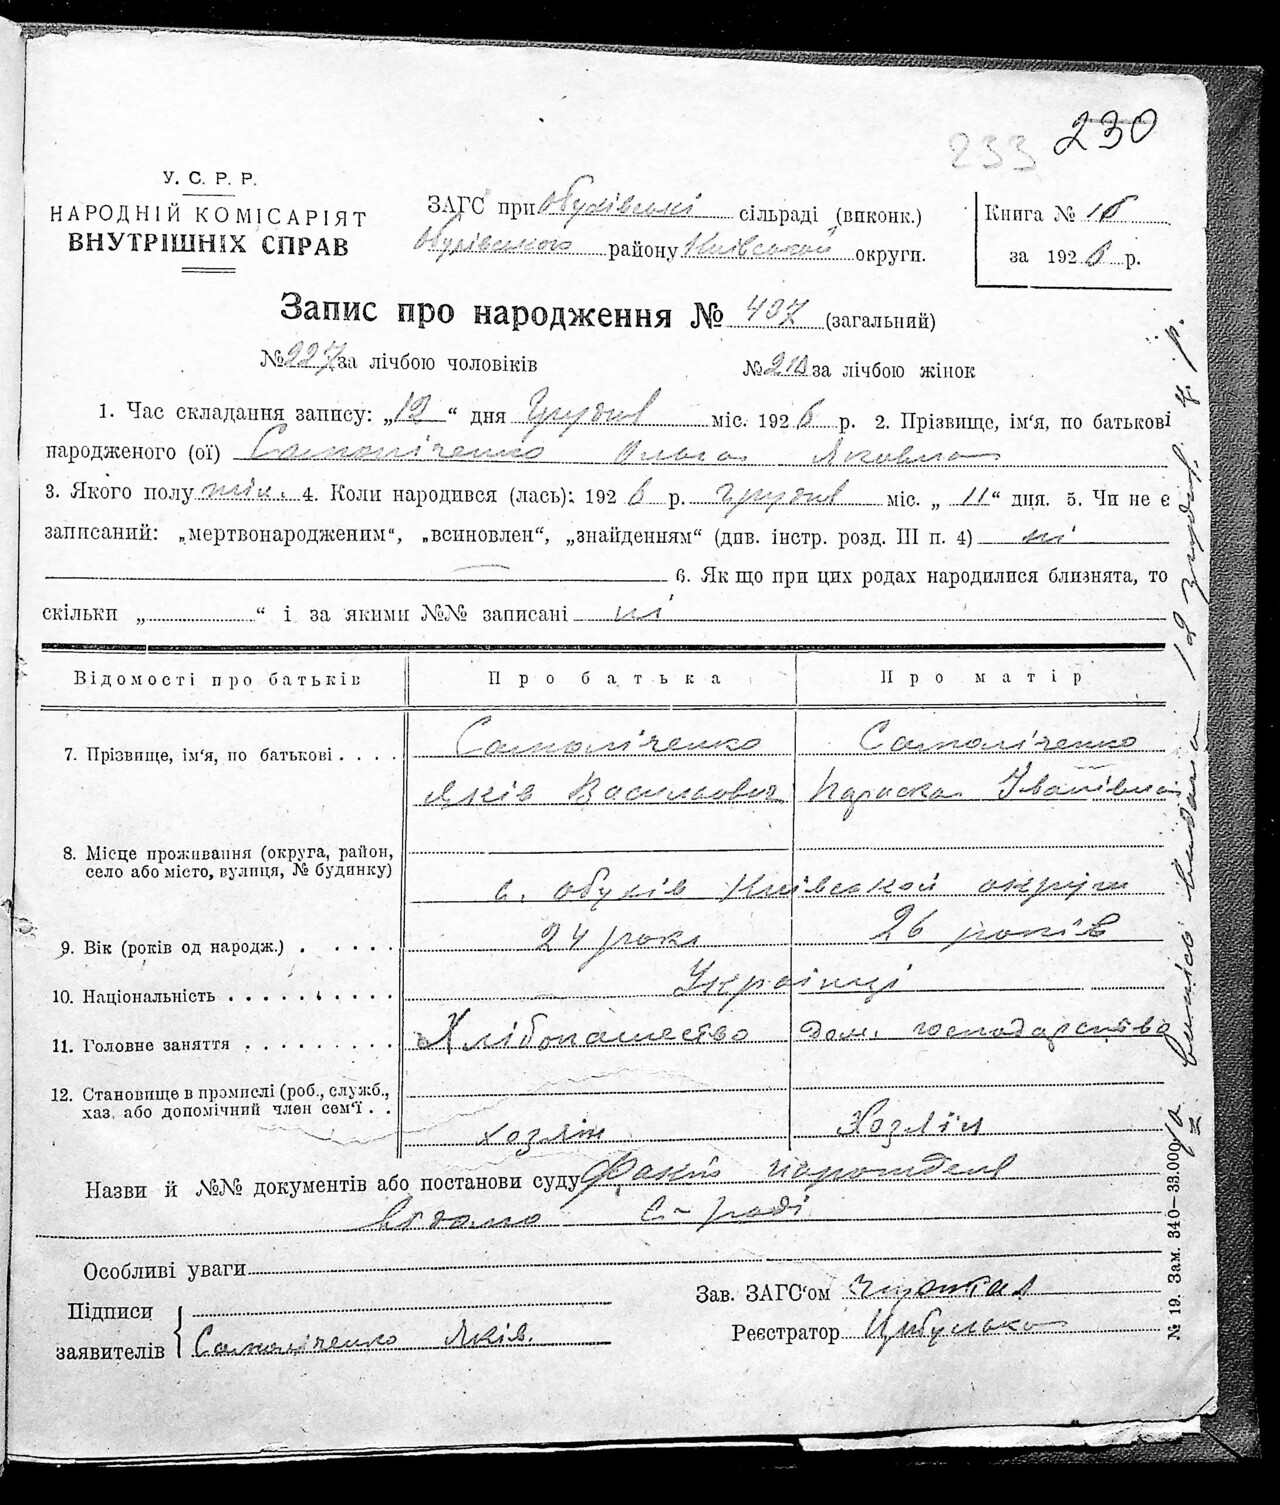 233 230
У. С. Р. Р.
НАРОДНІЙ КОМІСАРІЯТ
ВНУТРІШНІХ СПРАВ
ЗАГС при Обухівські сільраді (виконк.)
Обухівського району Київської округи.
Книга № 1б
за 1926 р.
Запис про народження № 437 (загальний)
№ 227 за лічбою чоловіків № 210 за лічбою жінок
1. Час складання запису: „12“ дня Грудня міс. 1926 р. 2. Прізвище, ім‘я, по батькові
народженого (ої) Самоліченко Ольга Яковна
3. Якого полу жін. 4. Коли народився (лась): 1926 р. грудня міс. „11“ дня. 5. Чи не є
записаний: „мертвонародженим“, „всиновлен“, „знайденням“ (див. інстр. розд. III п. 4) ні
6. Як що при цих родах народилися близнята, то
скільки „ “ і за якими №№ записані ні
Відомості про батьків Про батька Про матір
7. Прізвище, ім‘я, по батькові . . . . Самоліченко Самоліченко
Яків Васильович Параска Іванівна
8. Місце проживання (округа, район,
село або місто, вулиця, № будинку)
с. Обухів Київської округи
9. Вік (років од народж.) . . . . . 24 роки 26 років
10. Національність . . . . . . . . . Українці
11. Головне заняття . . . . . . . . . Хлібопашество дом. господарство
12. Становище в промислі (роб., служб.,
хаз. або допомічний член сем‘ї . .
хозяїн Хозяїн
Назви й №№ документів або постанови суду Факт народженя
відомо с-раді
Особливі уваги
Підписи
заявителів Самоліченко Яків.
Зав. ЗАГС‘ом
Реєстратор Цибулька
№ 19. Зам. 340—33.000.
випись видана 12 грудня ц. р.